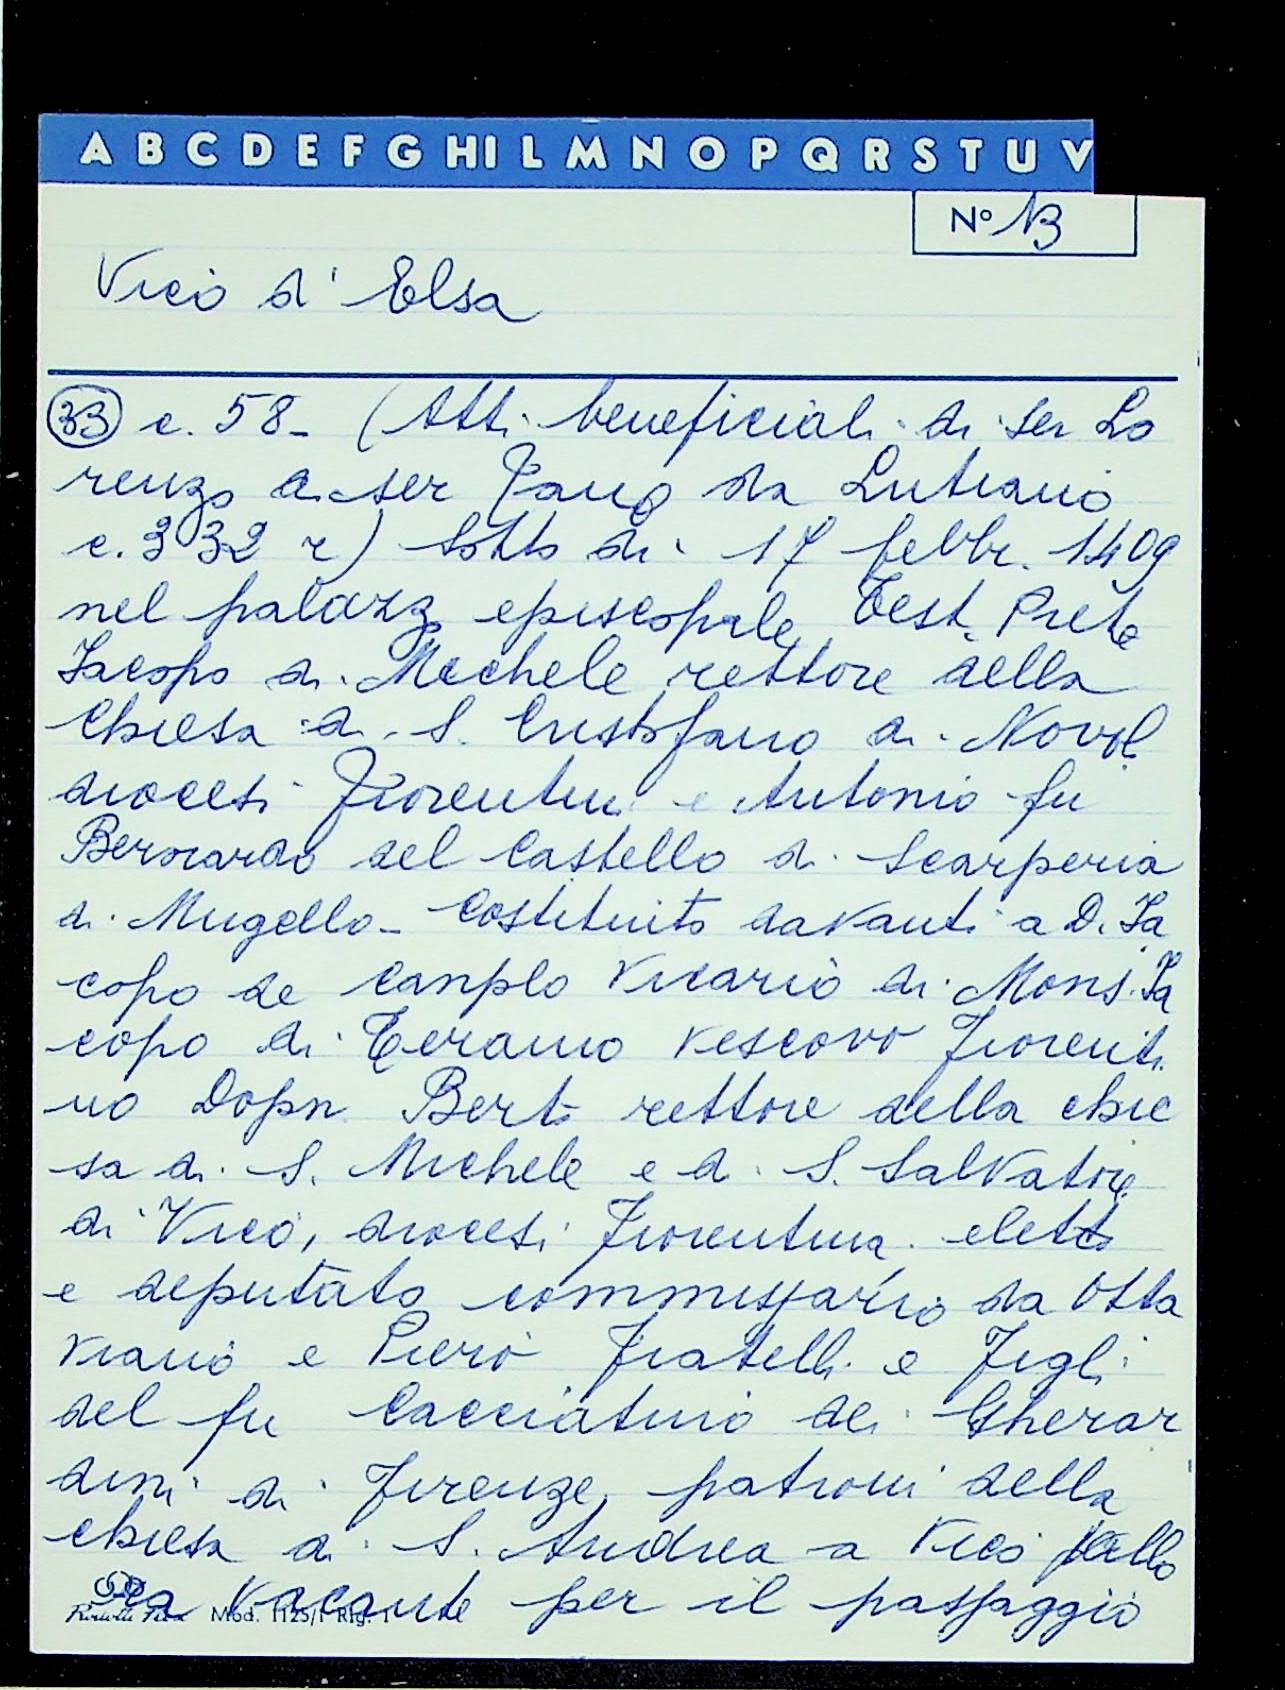 A B C D E F G H I L M N O P Q R S T U V
N° 13
Vico d'Elsa
33 c. 58 - (Atti beneficiali di ser Lo
renzo di ser Tano da Lutiano
c. 332 r) Sotto dì 17 febbr. 1409
nel palazzo episcopale, Test. Prete
Jacopo di Michele rettore della
Chiesa di S. Cristofano a Novoli
diocesi Fiorentina e Antonio fu
Bernardo del Castello di Scarperia
di Mugello - Costituito davanti a D. Ja
copo de Camplo Vicario di Mons. Ja
copo di Teramo vescovo Fiorenti
no Berto rettore della chie
sa di S. Michele e di S. Salvatore
di Vico, diocesi Fiorentina eletto
e deputato commissario da Otta
viano e Piero fratelli e figli
del fu Cacciatino dei Gherar
dini di Firenze, patroni della
chiesa di S. Andrea a Vico allo
ra vacante per il passaggio
Mod. 1125/1 Rig. 1